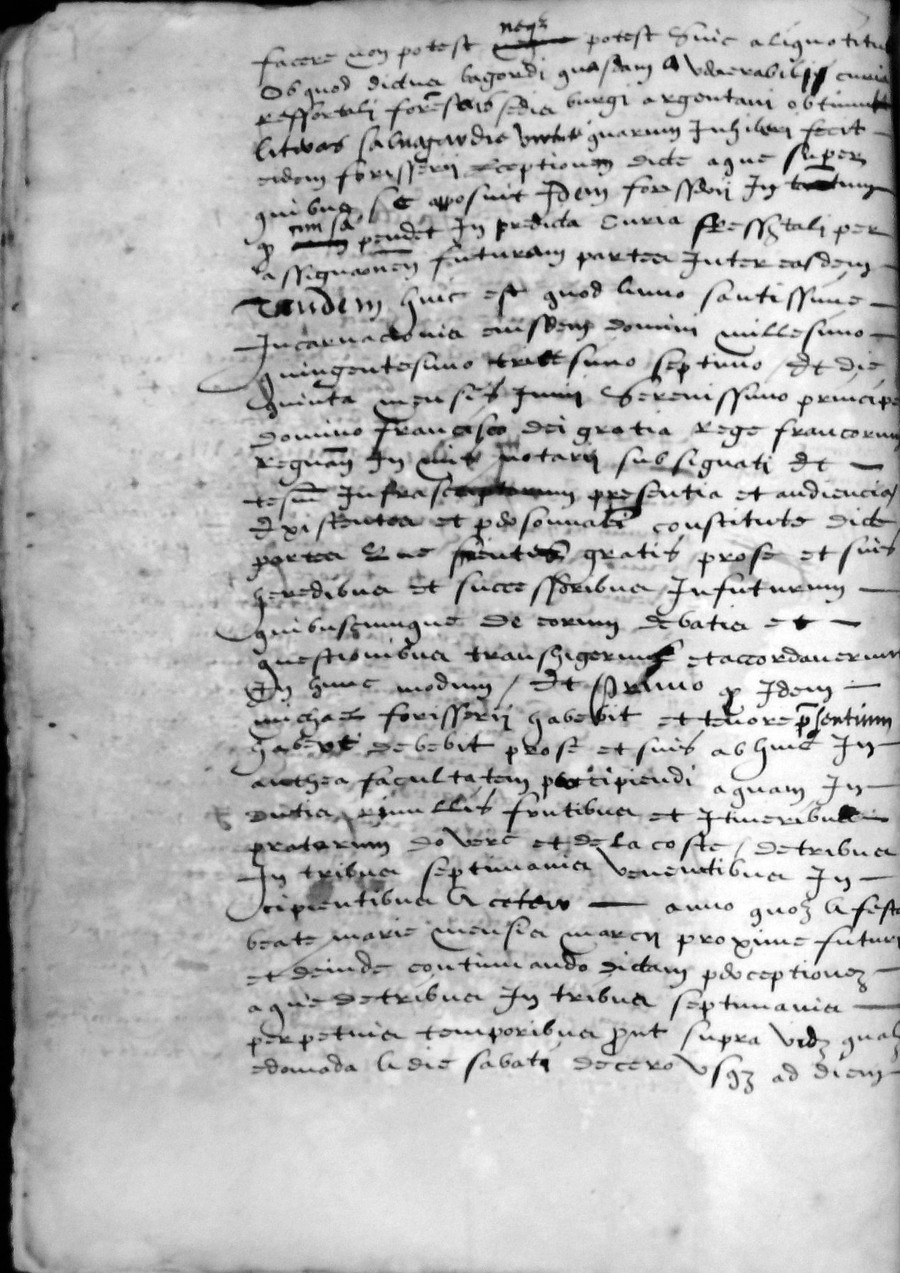 facere non potest neqz potest huic aliquo titu
Ob quod dictus bagordi quasdam a venerabili curia
ressortali forensis sedis burgi argentani obtinuit
literas salvagardie quarum Inhiberi fecit
eidem forisserii perceptionem dicte aque super
quibus se opposuit Idem forisserii In tantum
q causa pendet In predicta Curia Ressortali per
assignaonem futuram partes Inter easdem
Tandem hinc est quod anno santissime
Incarnacionis eiusdem domini millesimo
quingentesimo tricesimo septimo Et die
quinta mensis Junii Serenissimo principe
domino Francisco dei gratia rege francorum
regnan In mei notarii subsignati Et
testium Infrascriptorum presentia et audiencia
Existentes et personnaliter constitute dicte
partes Que scientes gratis pro se et suis
heredibus et successoribus Infuturum
quibuscumque de eorum debatis et
questionibus transhigerunt et accordaverunt
In hunc modum / Et primo q Idem
michael forisserii habebit et tenore presentium
habere debebit pro se et suis ab hinc In
anthea facultatem percipiendi aquam In
dictis rivullis fontibus et Itineribus
pratorum do verc et de la coste / de tribus
In tribus septimanis venientibus In
cipientibus A cetero anno quoz A festo
beate marie mensis marcii proxime futuri
et deinde continuando dictam perceptionez
aque de tribus In tribus septimanis
perpetuis temporibus prout supra vidz qualz
edomada A die sabati de cero usqz ad diem